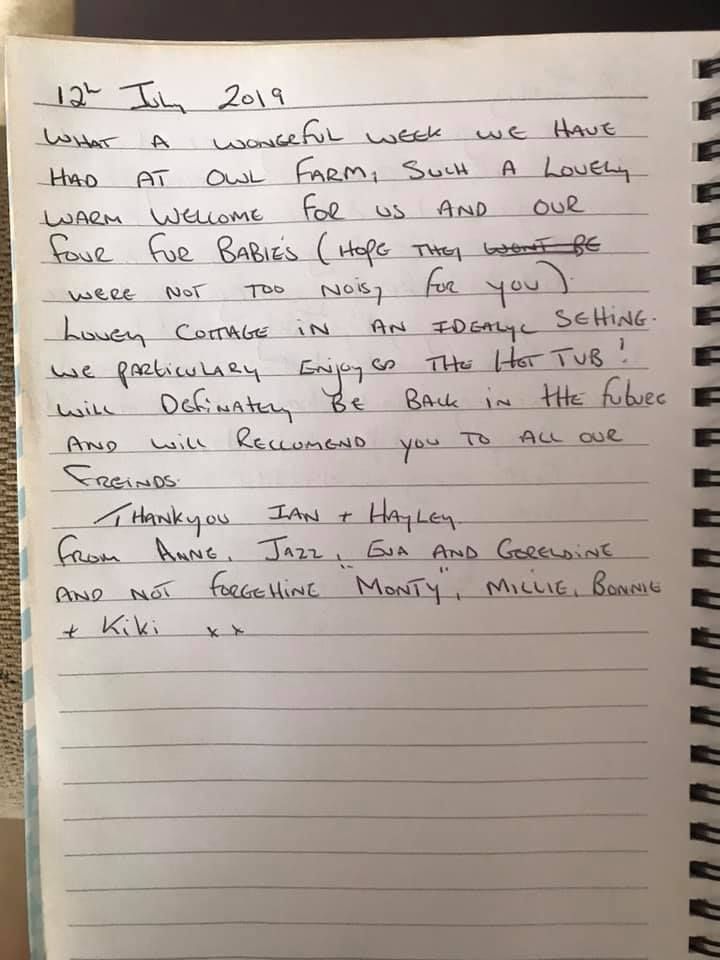 12th July 2019
WHAT A WONDERFUL WEEK WE HAVE
HAD AT OWL FARM, SUCH A LOVELY
WARM WELCOME FOR US AND OUR
FOUR FUR BABIES (HOPE THEY WONT BE
WERE NOT TOO NOISY FOR YOU).
LOVELY COTTAGE IN AN IDEALYC SETTING.
WE PARTICULARY ENJOYED THE HOT TUB!
WILL DEFINATELY BE BACK IN THE FUTURE
AND WILL RECCOMEND YOU TO ALL OUR
FREINDS.
THANKYOU IAN + HAYLEY.
FROM ANNE, JAZZ, EVA AND GERELDINE
AND NOT FORGETTING "MONTY", MILLIE, BONNIE
+ KIKI x x